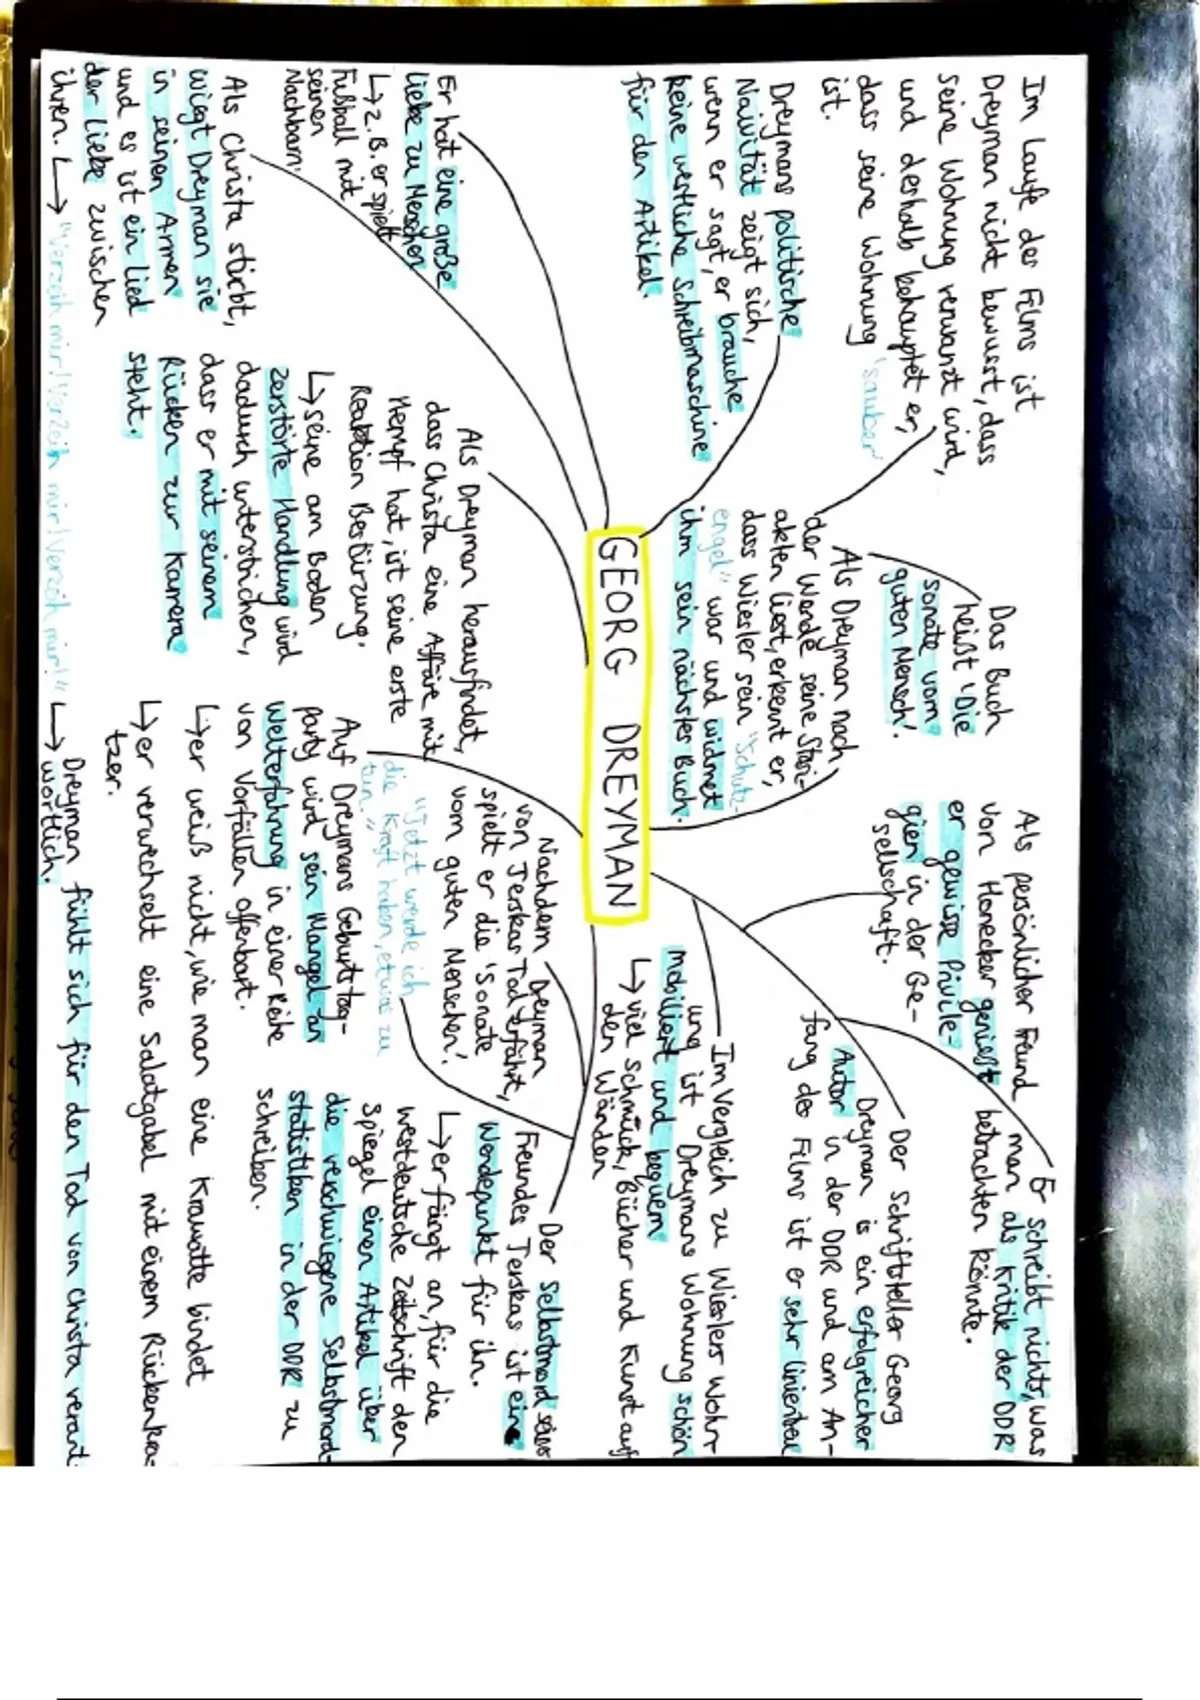 GEORG DREYMAN
Im Laufe des Films ist
Dreyman nicht bewusst, dass
seine Wohnung verwanzt wird,
und deshalb behauptet er,
dass seine Wohnung "sauber"
ist.
Dreymans politische
Naivität zeigt sich,
wenn er sagt, er brauche
keine westliche Schreibmaschine
für den Artikel.
Er hat eine große
Liebe zu Menschen
↳ z.B. er spielt
Fußball mit
seinen
Nachbarn.
Als Christa stirbt,
wiegt Dreyman sie
in seinen Armen
und es ist ein Lied
der Liebe zwischen
ihnen. ↳ "Verzeih mir! Verzeih mir! Verzeih mir!"
↳ Dreyman fühlt sich für den Tod von Christa verant-
wortlich.
Das Buch
heißt "Die
Sonate vom
guten Mensch".
Als Dreyman nach
der Wende seine Stasi-
akten liest, erkennt er,
dass Wiesler sein "Schutz-
engel" war und widmet
ihm sein nächstes Buch.
Als Dreyman herausfindet,
dass Christa eine Affäre mit
Hempf hat, ist seine erste
Reaktion Bestürzung.
↳ seine am Boden
zerstörte Handlung wird
dadurch unterstrichen,
dass er mit seinem
Rücken zur Kamera
steht.
Als persönlicher Freund
von Honecker genießt
er gewisse Privile-
gien in der Ge-
sellschaft.
Er schreibt nichts, was
man als Kritik der DDR
betrachten könnte.
Der Schriftsteller Georg
Dreyman is ein erfolgreicher
Autor in der DDR und am An-
fang des Films ist er sehr linientreu
Im Vergleich zu Wieslers Wohn-
ung ist Dreymans Wohnung schön
mobiliert und bequem
↳ viel Schmuck, Bücher und Kunst auf
den Wänden
Nachdem Dreyman
von Jerskas Tod erfährt,
spielt er die "Sonate
vom guten Menschen".
"Jetzt werde ich
die Kraft haben, etwas zu
tun."
Der Selbstmord seines
Freundes Jerskas ist eine
Wendepunkt für ihn.
↳ er fängt an, für die
westdeutsche Zeitschrift den
Spiegel einen Artikel über
die verschwiegene Selbstmord-
statistiken in der DDR zu
schreiben.
Auf Dreymans Geburtstag-
party wird sein Mangel an
Welterfahrung in einer Reihe
von Vorfällen offenbart.
↳ er weiß nicht, wie man eine Krawatte bindet
↳ er verwechselt eine Salatgabel mit einem Rückenkra-
tzer.